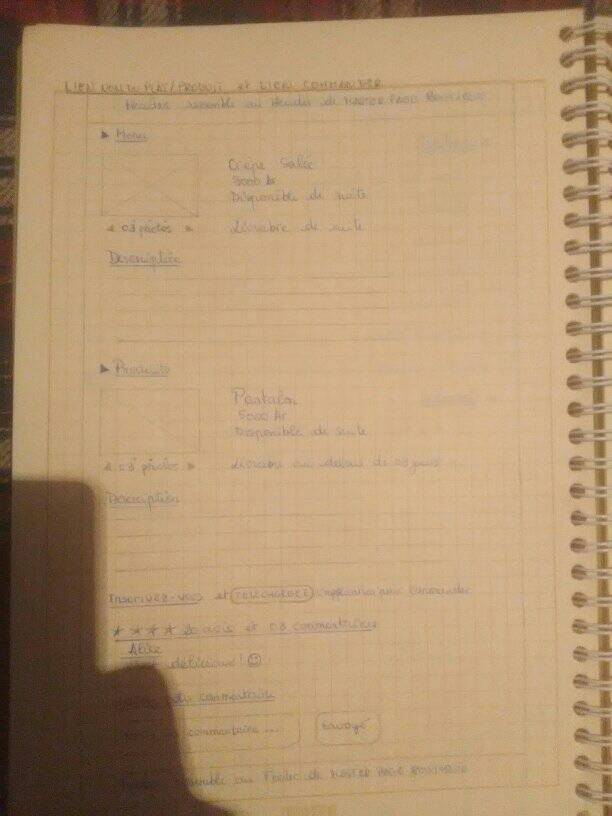 LIEN NOM DU PLAT/PRODUIT et LIEN COMMANDER
Header semblable au Header de MASTER PAGE BOUTIQUE
► Menu
Crêpe Salée
3000 Ar
Disponible de suite
◄ 03 photos ►
Livrable de suite
Description
► Produits
Pantalon
5000 Ar
Disponible de suite
◄ 03 photos ►
Livrable au dessus de 03 jours
Description
Inscrivez-vous et TELECHARGEZ l'application pour Commander
★ ★ ★ ★ 20 avis et 03 commentaires
délicieux ! ☺
commentaire
commentaire ...
Envoyé
au Footer de MASTER PAGE BOUTIQUE